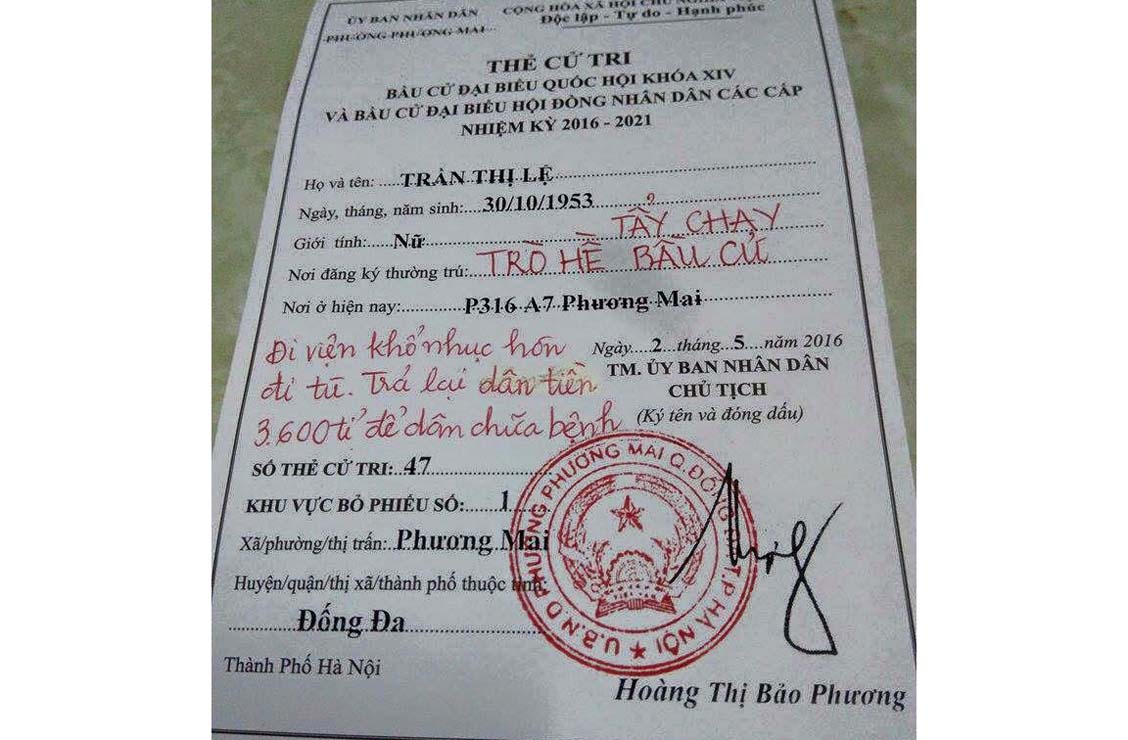 ỦY BAN NHÂN DÂN
PHƯỜNG PHƯƠNG MAI
CỘNG HÒA XÃ HỘI CHỦ NGHĨA
Độc lập - Tự do - Hạnh phúc
THẺ CỬ TRI
BẦU CỬ ĐẠI BIỂU QUỐC HỘI KHÓA XIV
VÀ BẦU CỬ ĐẠI BIỂU HỘI ĐỒNG NHÂN DÂN CÁC CẤP
NHIỆM KỲ 2016 - 2021
Họ và tên:.....TRẦN THỊ LỆ
Ngày, tháng, năm sinh:....30/10/1953
Giới tính:.....Nữ
TẨY CHAY
Nơi đăng ký thường trú: TRÒ HỀ BẦU CỬ
Nơi ở hiện nay:............P316 A7 Phương Mai
Đi viện khổ nhục hơn
đi tù. Trả lại dân tiền
3.600 tỉ để dân chữa bệnh
Ngày....2...tháng...5....năm 2016
TM. ỦY BAN NHÂN DÂN
CHỦ TỊCH
(Ký tên và đóng dấu)
SỐ THẺ CỬ TRI:..47
KHU VỰC BỎ PHIẾU SỐ:......1
Xã/phường/thị trấn: Phương Mai
Huyện/quận/thị xã/thành phố thuộc tỉnh
Đống Đa
Thành Phố Hà Nội
U.B.N.D PHƯỜNG PHƯƠNG MAI Q.ĐỐNG ĐA T.P HÀ NỘI
Hoàng Thị Bảo Phương